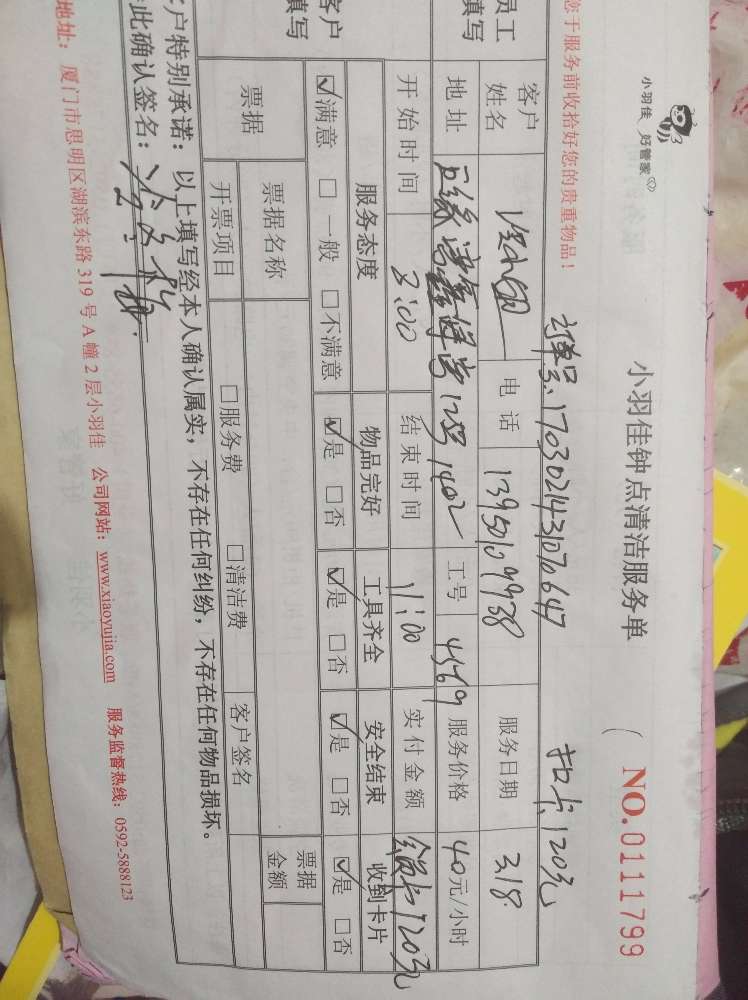 小羽佳 好管家
小羽佳钟点清洁服务单
NO.0111799
您于服务前收拾好您的贵重物品！
订单号:17030214431070647 扣卡120元
员工填写
客户姓名 电话 13950109938 服务日期 3.18
地址 1402 工号 4569 服务价格 40元/小时
开始时间 3:00 结束时间 11:00 实付金额 120元
客户填写
服务态度 物品完好 工具齐全 安全结束 收到卡片
☑满意 □一般 □不满意 ☑是 □否 ☑是 □否 ☑是 □否 ☑是 □否
票据 票据名称 票据金额
开票项目 □服务费 □清洁费 客户签名
客户特别承诺：以上填写经本人确认属实，不存在任何纠纷，不存在任何物品损坏。
此确认签名：
地址：厦门市思明区湖滨东路319号A幢2层小羽佳 公司网站：www.xiaoyujia.com 服务监督热线：0592-5888123